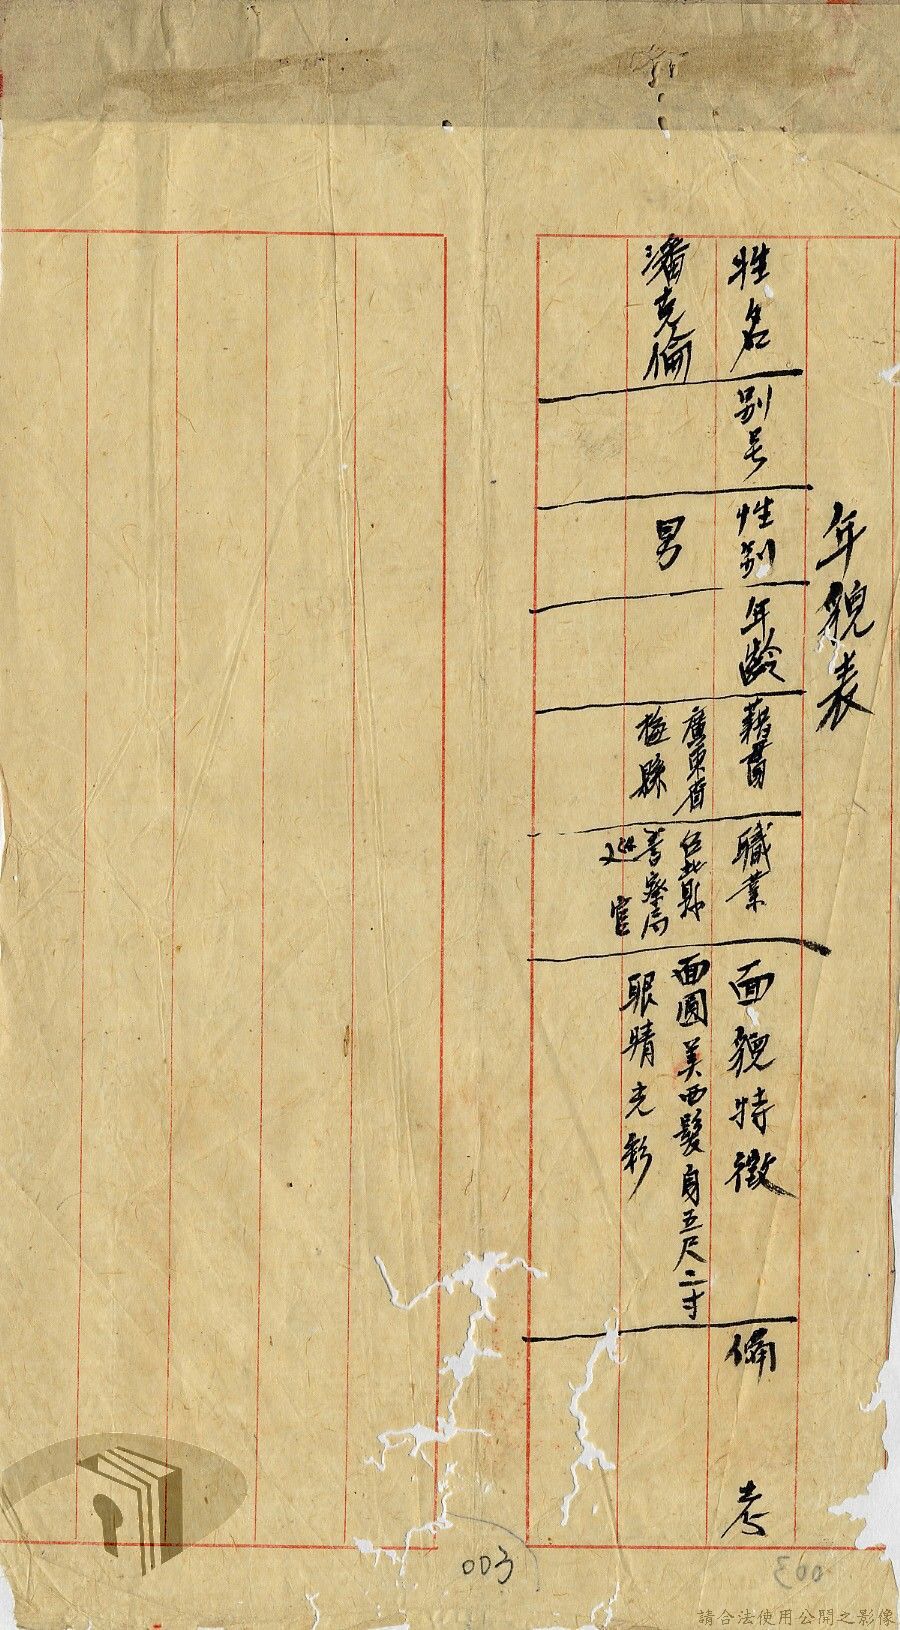 年貌表
姓名
別号
性別
年齡
籍貫
職業
面貌特徵
備考
潘克倫
男
廣東省
梅縣
台北縣
警察局
巡官
面圓美西髮身五尺二寸
眼睛光彩
003
003
請合法使用公開之影像